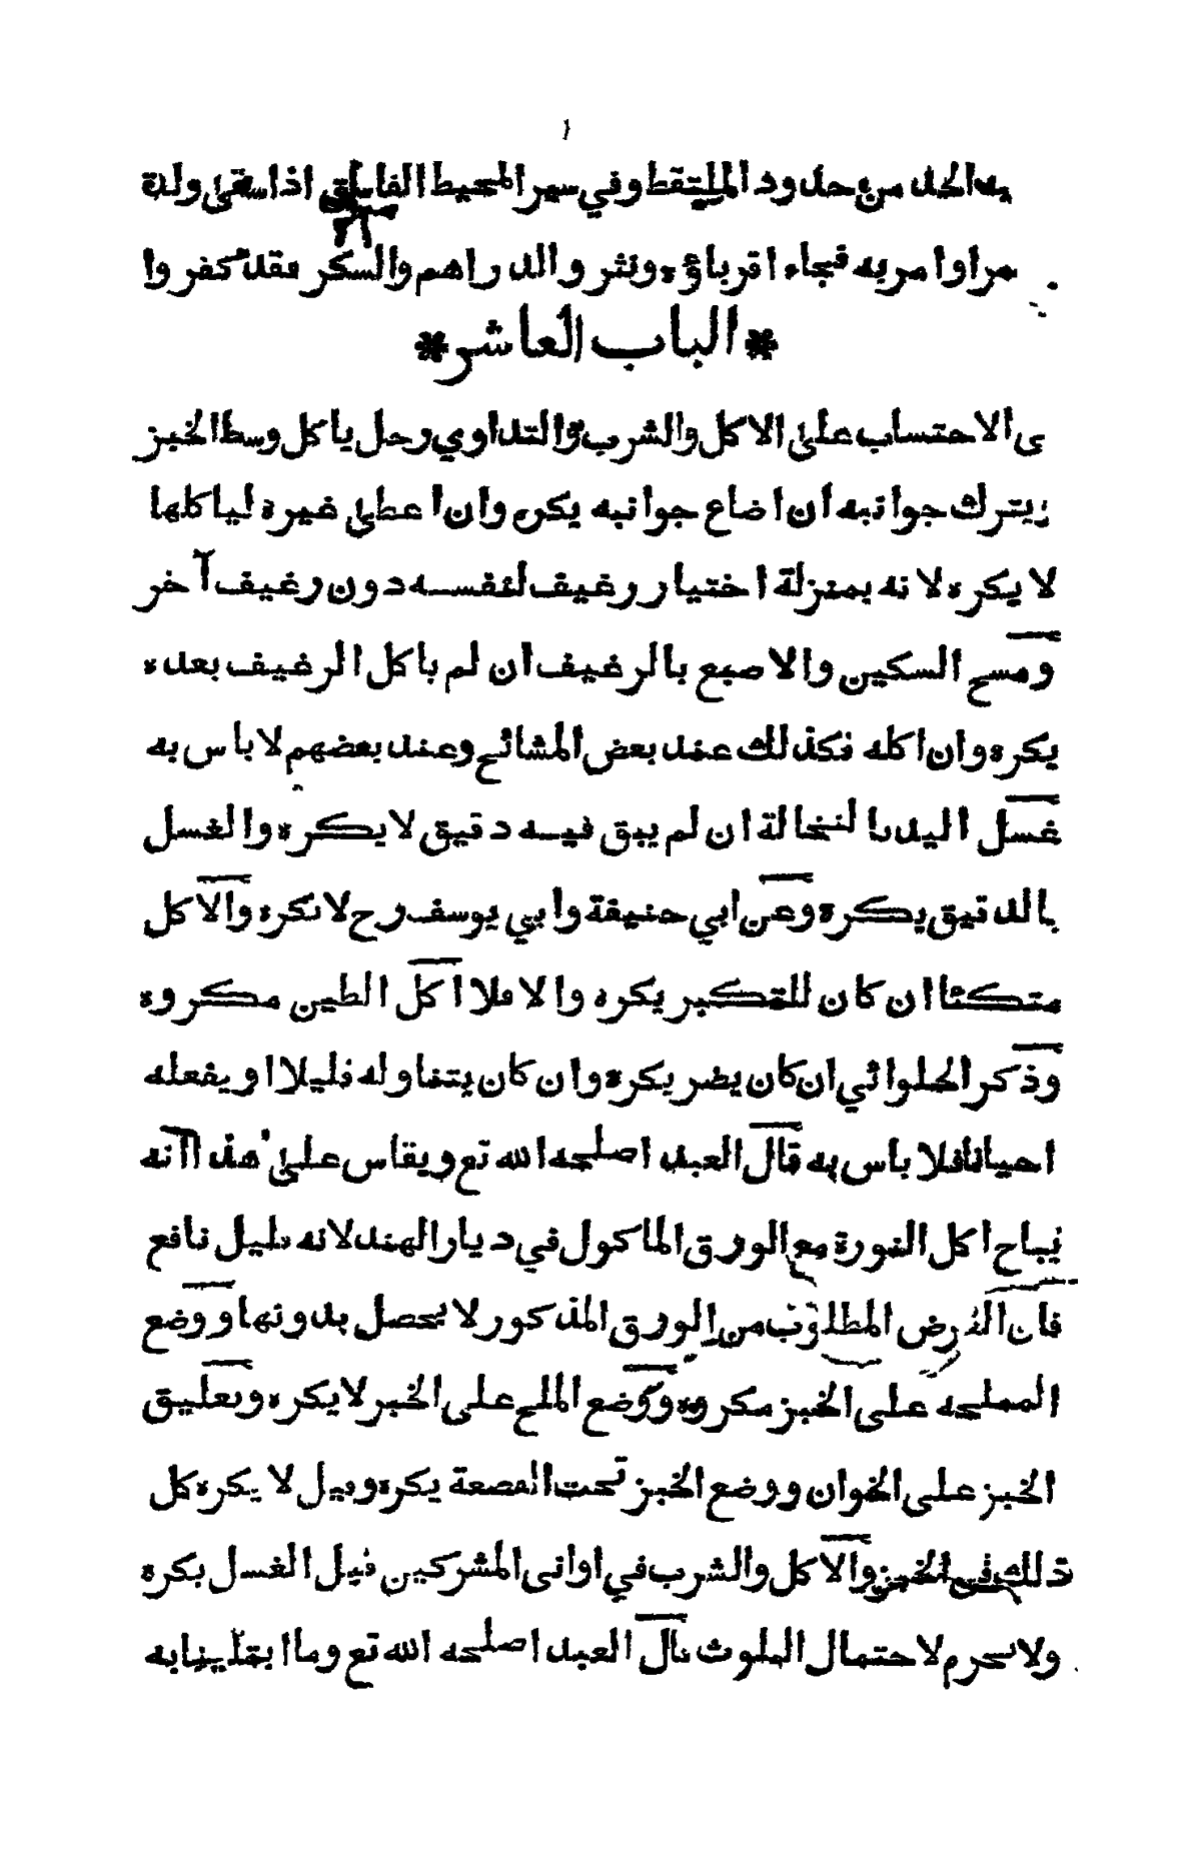 ١
به الحد من حدود الملتقط وفي سير المحيط الفاسق اذا سقى ولده
خمرا وامر به فجاء اقرباؤه ونثر والدراهم والسكر فقد كفروا
* الباب العاشر *
ى الاحتساب على الاكل والشرب والتداوي رجل ياكل وسط الخبز
ويترك جوانبه ان اضاع جوانبه يكره وان اعطى غيره لياكلها
لا يكره لانه بمنزلة اختيار رغيف لنفسه دون رغيف آخر
ومسح السكين والاصبع بالرغيف ان لم ياكل الرغيف بعده
يكره وان اكله فكذلك عند بعض المشائح وعند بعضهم لا باس به
غسل اليد بالنخالة ان لم يبق فيه دقيق لا يكره والغسل
بالدقيق يكره وعن ابي حنيفة وابي يوسف رح لا نكره والاكل
متكئا ان كان للتكبر يكره والا فلا اكل الطين مكروه
وذكر الحلوائي ان كان يضر يكره وان كان يتناوله قليلا او يفعله
احيانا فلا باس به قال العبد اصلحه الله تع ويقاس على هذا انه
يباح اكل النورة مع الورق الماكول في ديار الهند لانه قليل نافع
فان الغرض المطلوب من الورق المذكور لا يحصل بدونها ووضع
المملحه على الخبز مكروه ووضع الملح على الخبر لا يكره وتعليق
الخبز على الخوان ووضع الخبز تحت القصعة يكره وقيل لا يكره كل
ذلك في الخبز والاكل والشرب في اوانى المشركين قبل الغسل يكره
ولا يحرم لاحتمال الملوث قال العبد اصلحه الله تع وما ابتلينا به